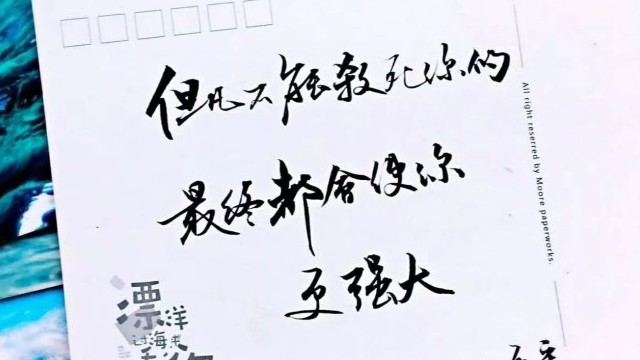 但凡不能杀死你的
最终都会使你
更强大
All right reserred by Moore paperworks.
漂洋
过海来